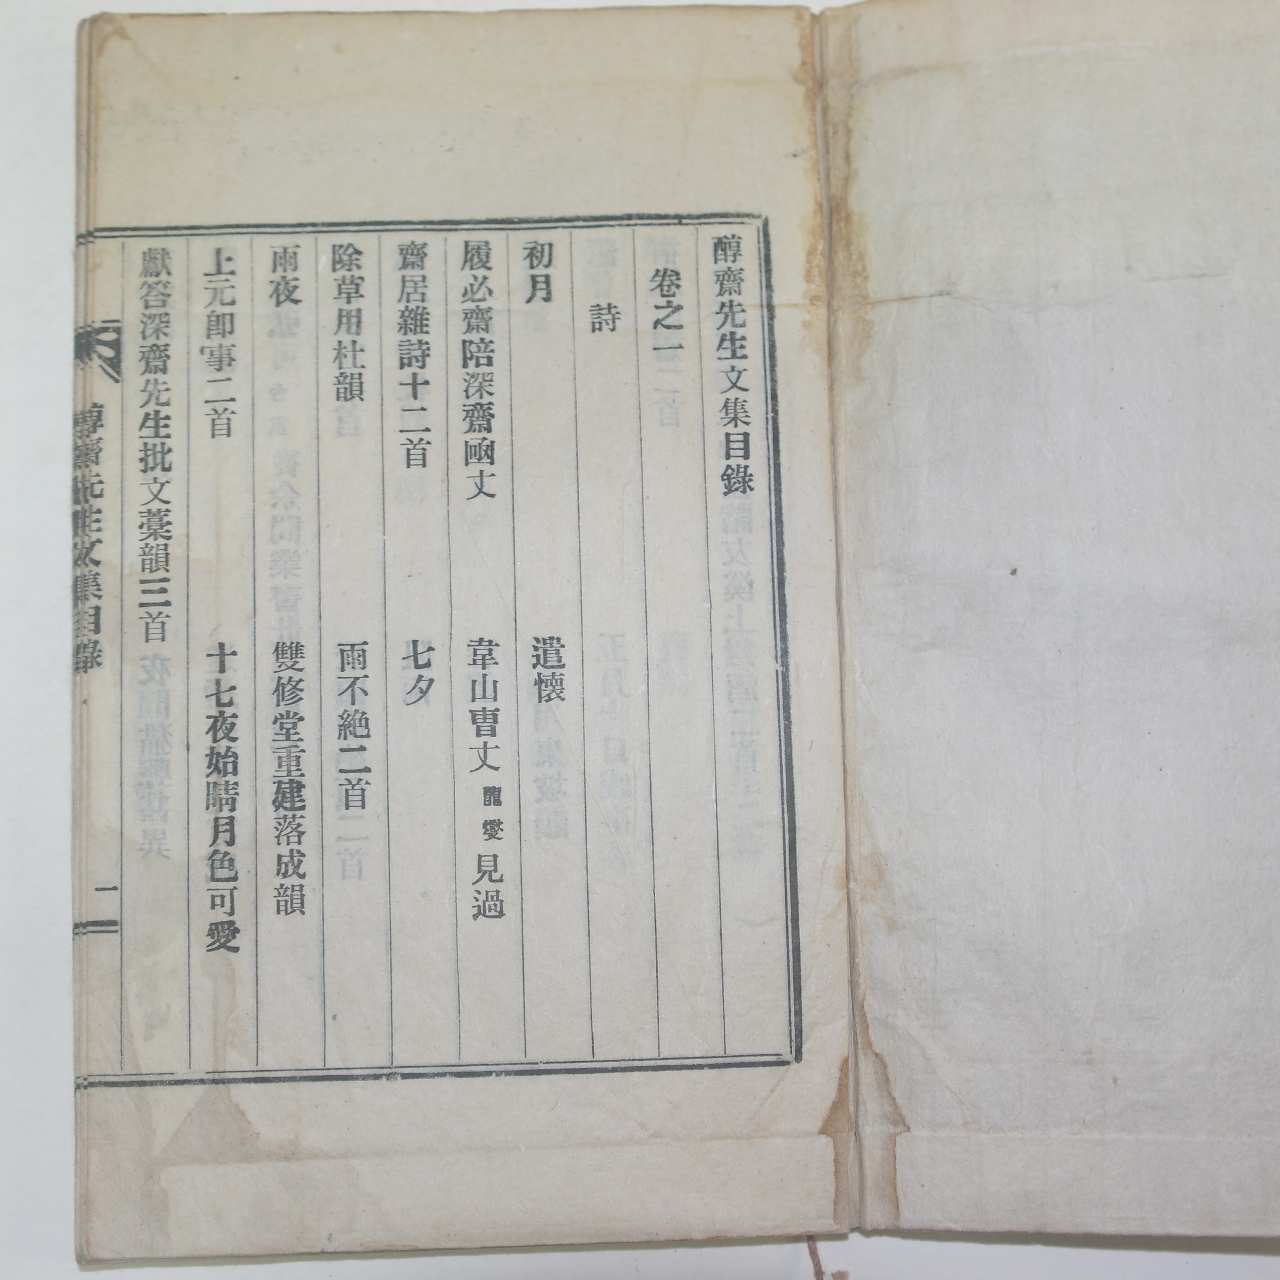 醇齋先生文集目錄
卷之一
詩
初月
遣懷
履必齋陪深齋凾丈
韋山曺丈龍燮見過
齋居雜詩十二首
七夕
除草用杜韻
雨不絶二首
雨夜
雙修堂重建落成韻
上元卽事二首
十七夜始晴月色可愛
獻答深齋先生批文藁韻三首
醇齋先生文集目錄
一